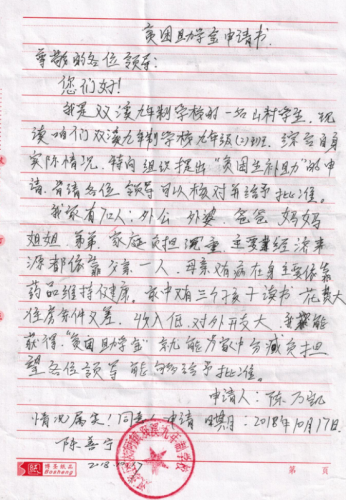 贫困助学金申请书
尊敬的各位领导:
您们好!
我是双溪九年制学校的一名山村学生,现
读咱们双溪九年制学校九年级(2)班,综合自身
实际情况,特向组织提出“贫困生补助”的申
请,各位领导可以核对并给予批准。
我家有7口人:外公 外婆、爸爸 妈妈
姐姐、弟弟,家庭负担沉重 主要经济来
源都依靠父亲一人,母亲有病在身主要依靠
药品维持健康。家中有三个孩子读书 花费大
住房条件又差,收入低,对外开支大,我能
获得“贫困助学金”就能为家中分减负担
望各位领导能够给予批准。
申请人:陈万凯
情况属实!同意申请 日期:2018年10月17日
陈善宁
2018.10.17
九年制学校
博圣纸品
Bosheng
第 页